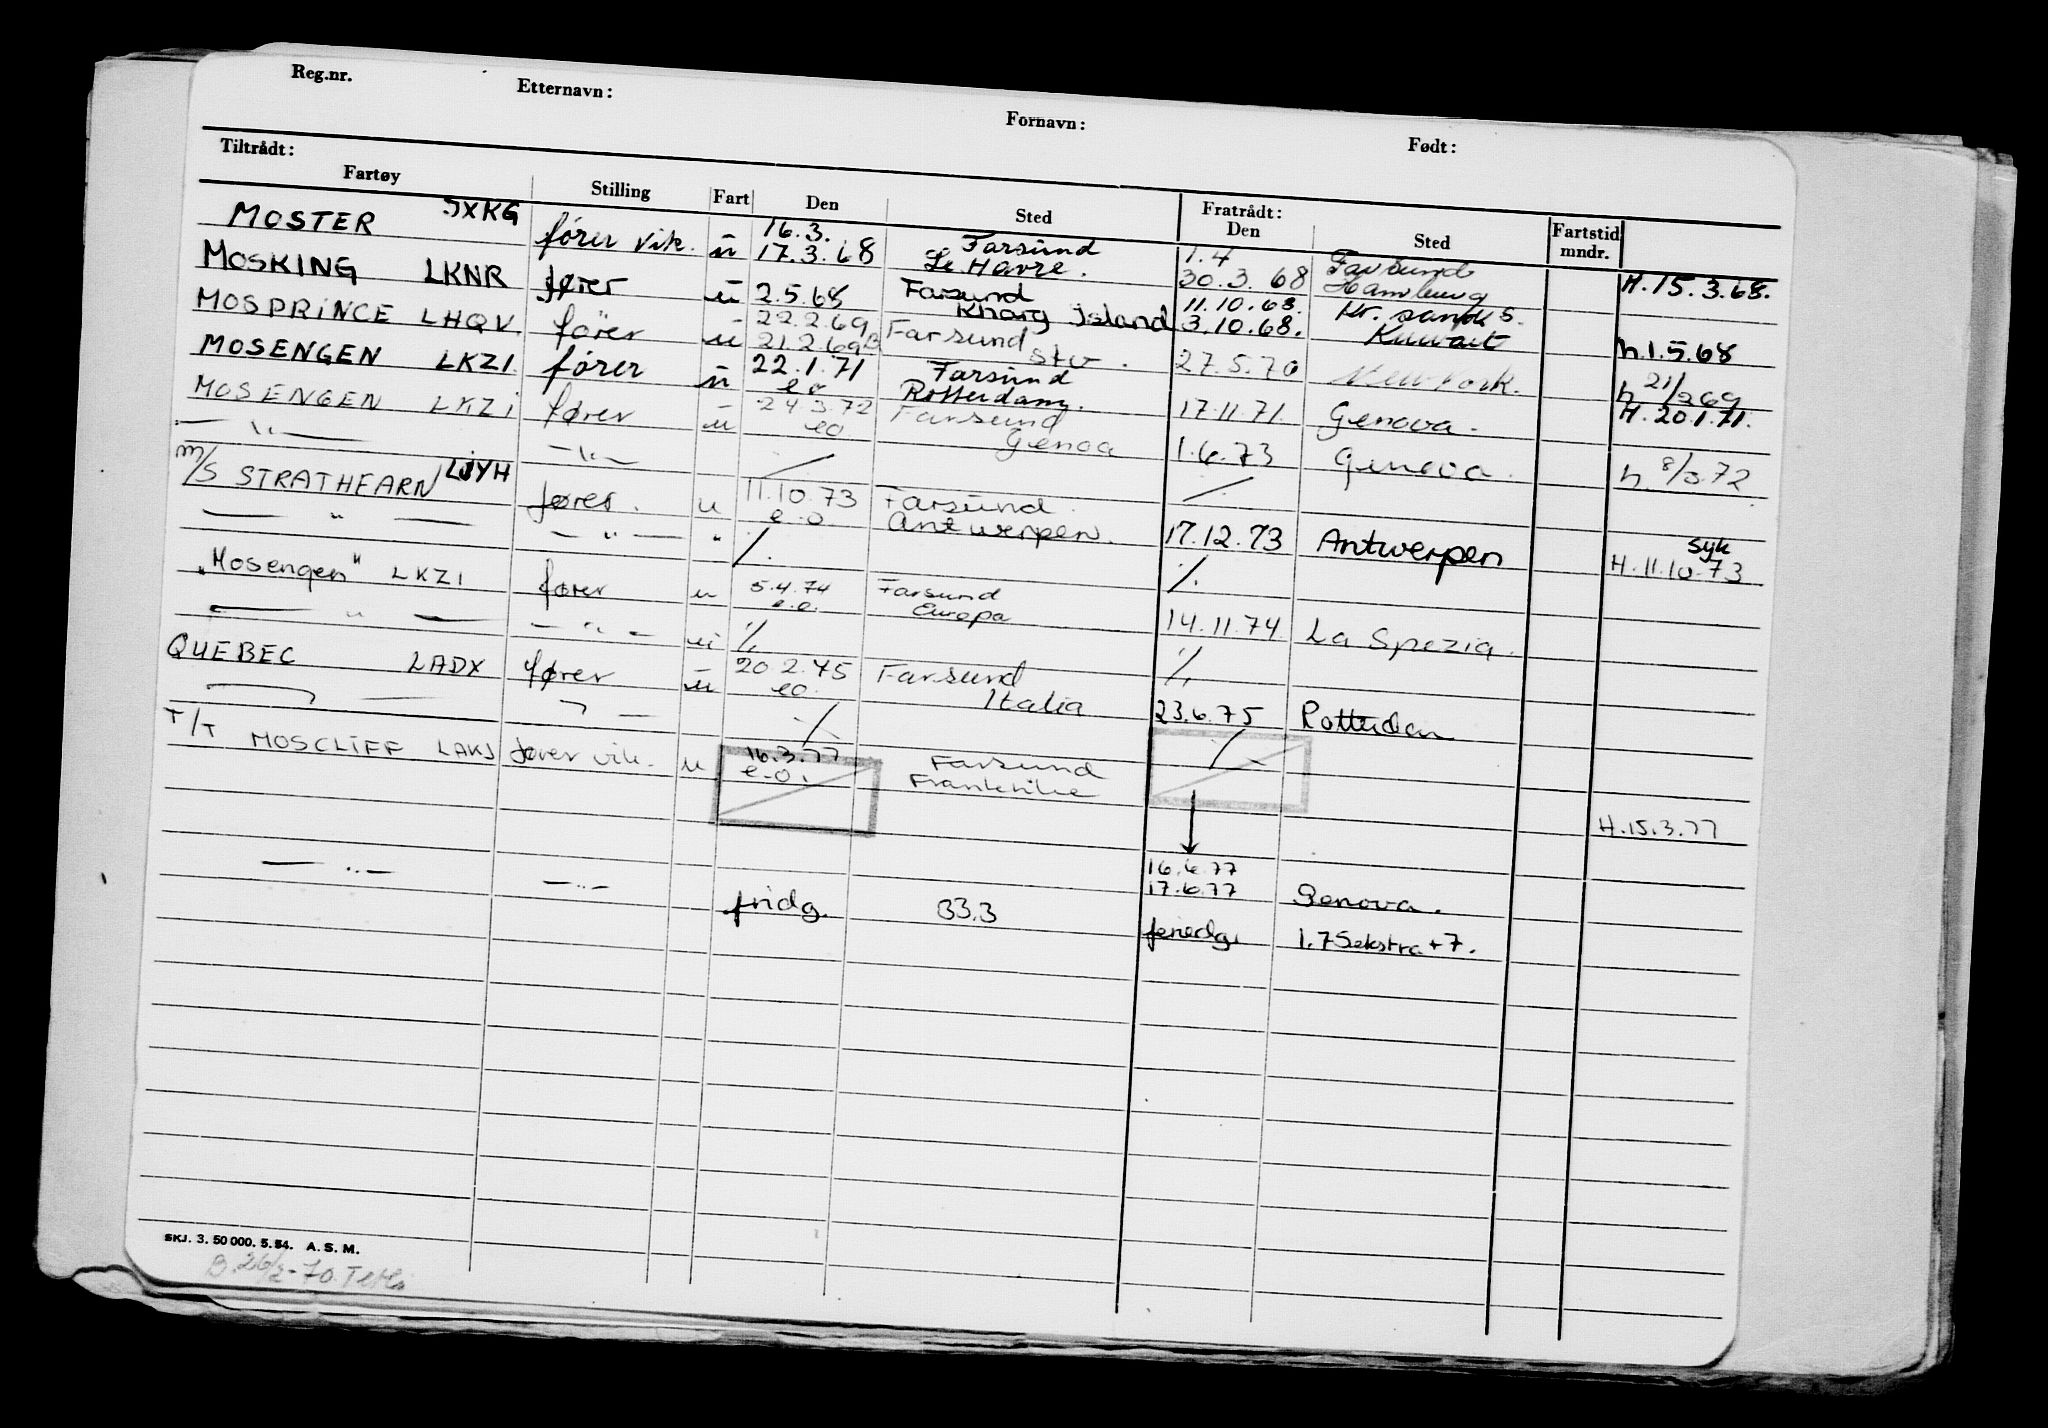 Reg.nr. Etternavn: Fornavn: Født:
Tiltrådt: Fratrådt:
Fartøy Stilling Fart Den Sted Den Sted Fartstid mndr.
MOSTER JXKG fører vik. u 16.3. Farsund 1.4 Farsund H.15.3.68.
17.3.68 Le Havre. 30.3.68 Hamburg
MOSKING LKNR fører u 2.5.68 Farsund 11.10.68. Kr. sand S. h.1.5.68
Kharg Island 3.10.68. Kuwait
MOSPRINCE LHQV. fører u 22.2.69 Farsund 27.5.70 New York. h 21/2 69
21.2.69B Stv.
MOSENGEN LKZI. fører u 22.1.71 Farsund 17.11.71. Genova. H.20.1.71.
eo Rotterdam.
MOSENGEN LKZi fører u 24.3.72 Farsund 1.6.73 Genova. h. 8/3.72
eo Genoa
— " — — " — / ./.
m/S STRATHEARN LJYH fører. u 11.10.73 Farsund. 17.12.73 Antwerpen syk
e.o. Antwerpen. H.11.10.73
— " — — " — " ./. ./.
"Mosengen" LKZI fører u 5.4.74 Farsund 14.11.74. La Spezia.
e.o. Europa
— " — — " — u ./. ./.
QUEBEC LADX fører u 20.2.75 Farsund 23.6.75 Rotterdam
eo. Italia
— — ./. ./.
T/T MOSCLIFF LAKJ fører vik. u 16.3.77 Farsund H.15.3.77
e.o. Frankrike
— " — — " — 16.6.77
17.6.77 Genova.
fridg. 33.3 feriedg. 1.75ekstra+7.
SKJ. 3. 50 000. 5. 54. A. S. M.
B. 26/2-70.